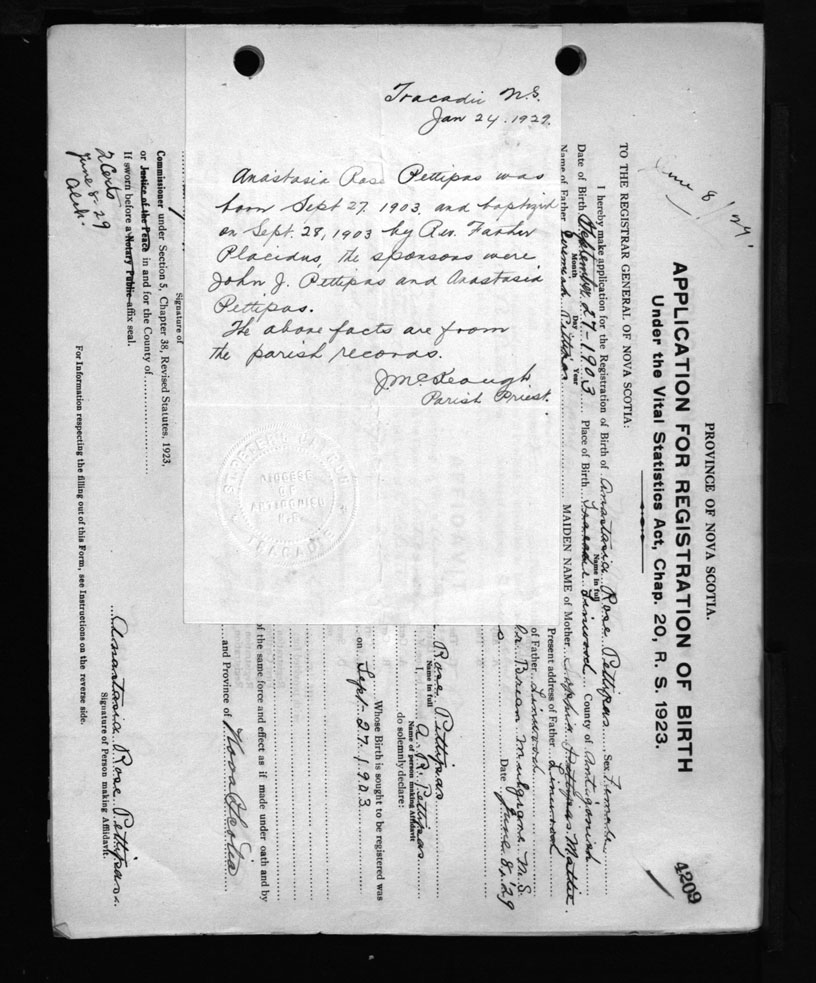 Tracadie N.S.
Jan 24. 1929.
Anastasia Rose Pettipas was
born Sept 27. 1903. and baptized
on Sept. 28, 1903 by Rev. Father
Placidus, the sponsors were
John J. Pettipas and Anastasia
Pettipas.
The above facts are from
the parish records.
J McKeough
Parish Priest.
DIOCESE
OF
ANTIGONISH
N.S.
TRACADIE
June 8/29
PROVINCE OF NOVA SCOTIA.
APPLICATION FOR REGISTRATION OF BIRTH
Under the Vital Statistics Act, Chap. 20, R. S. 1923.
4209
TO THE REGISTRAR GENERAL OF NOVA SCOTIA:
I hereby make application for the Registration of Birth of Anastasia Rose Pettipas Sex Female
Name in full
Date of Birth September 27-1903 Place of Birth Tracadie Linwood County of Antigonish
Month Day Year
Name of Father Jeremiah Pettipas MAIDEN NAME of Mother Sophia Pettipas Mattie.
Present address of Father Linwood
of Father Linwood
Brien Mulgrave N.S.
Date June 8, '29
Rose Pettipas
Name in full
I, A. R. Pettipas
Name of person making Affidavit
do solemnly declare:
Whose Birth is sought to be registered was
on Sept-27-1903
of the same force and effect as if made under oath and by
and Province of Nova Scotia
Signature of
Commissioner under Section 5, Chapter 38, Revised Statutes, 1923,
or Justice of the Peace in and for the County of
If sworn before a Notary Public affix seal.
2 Certs
June 8-29
Anastasia Rose Pettipas
Signature of Person making Affidavit.
For Information respecting the filling out of this Form, see Instructions on the reverse side.